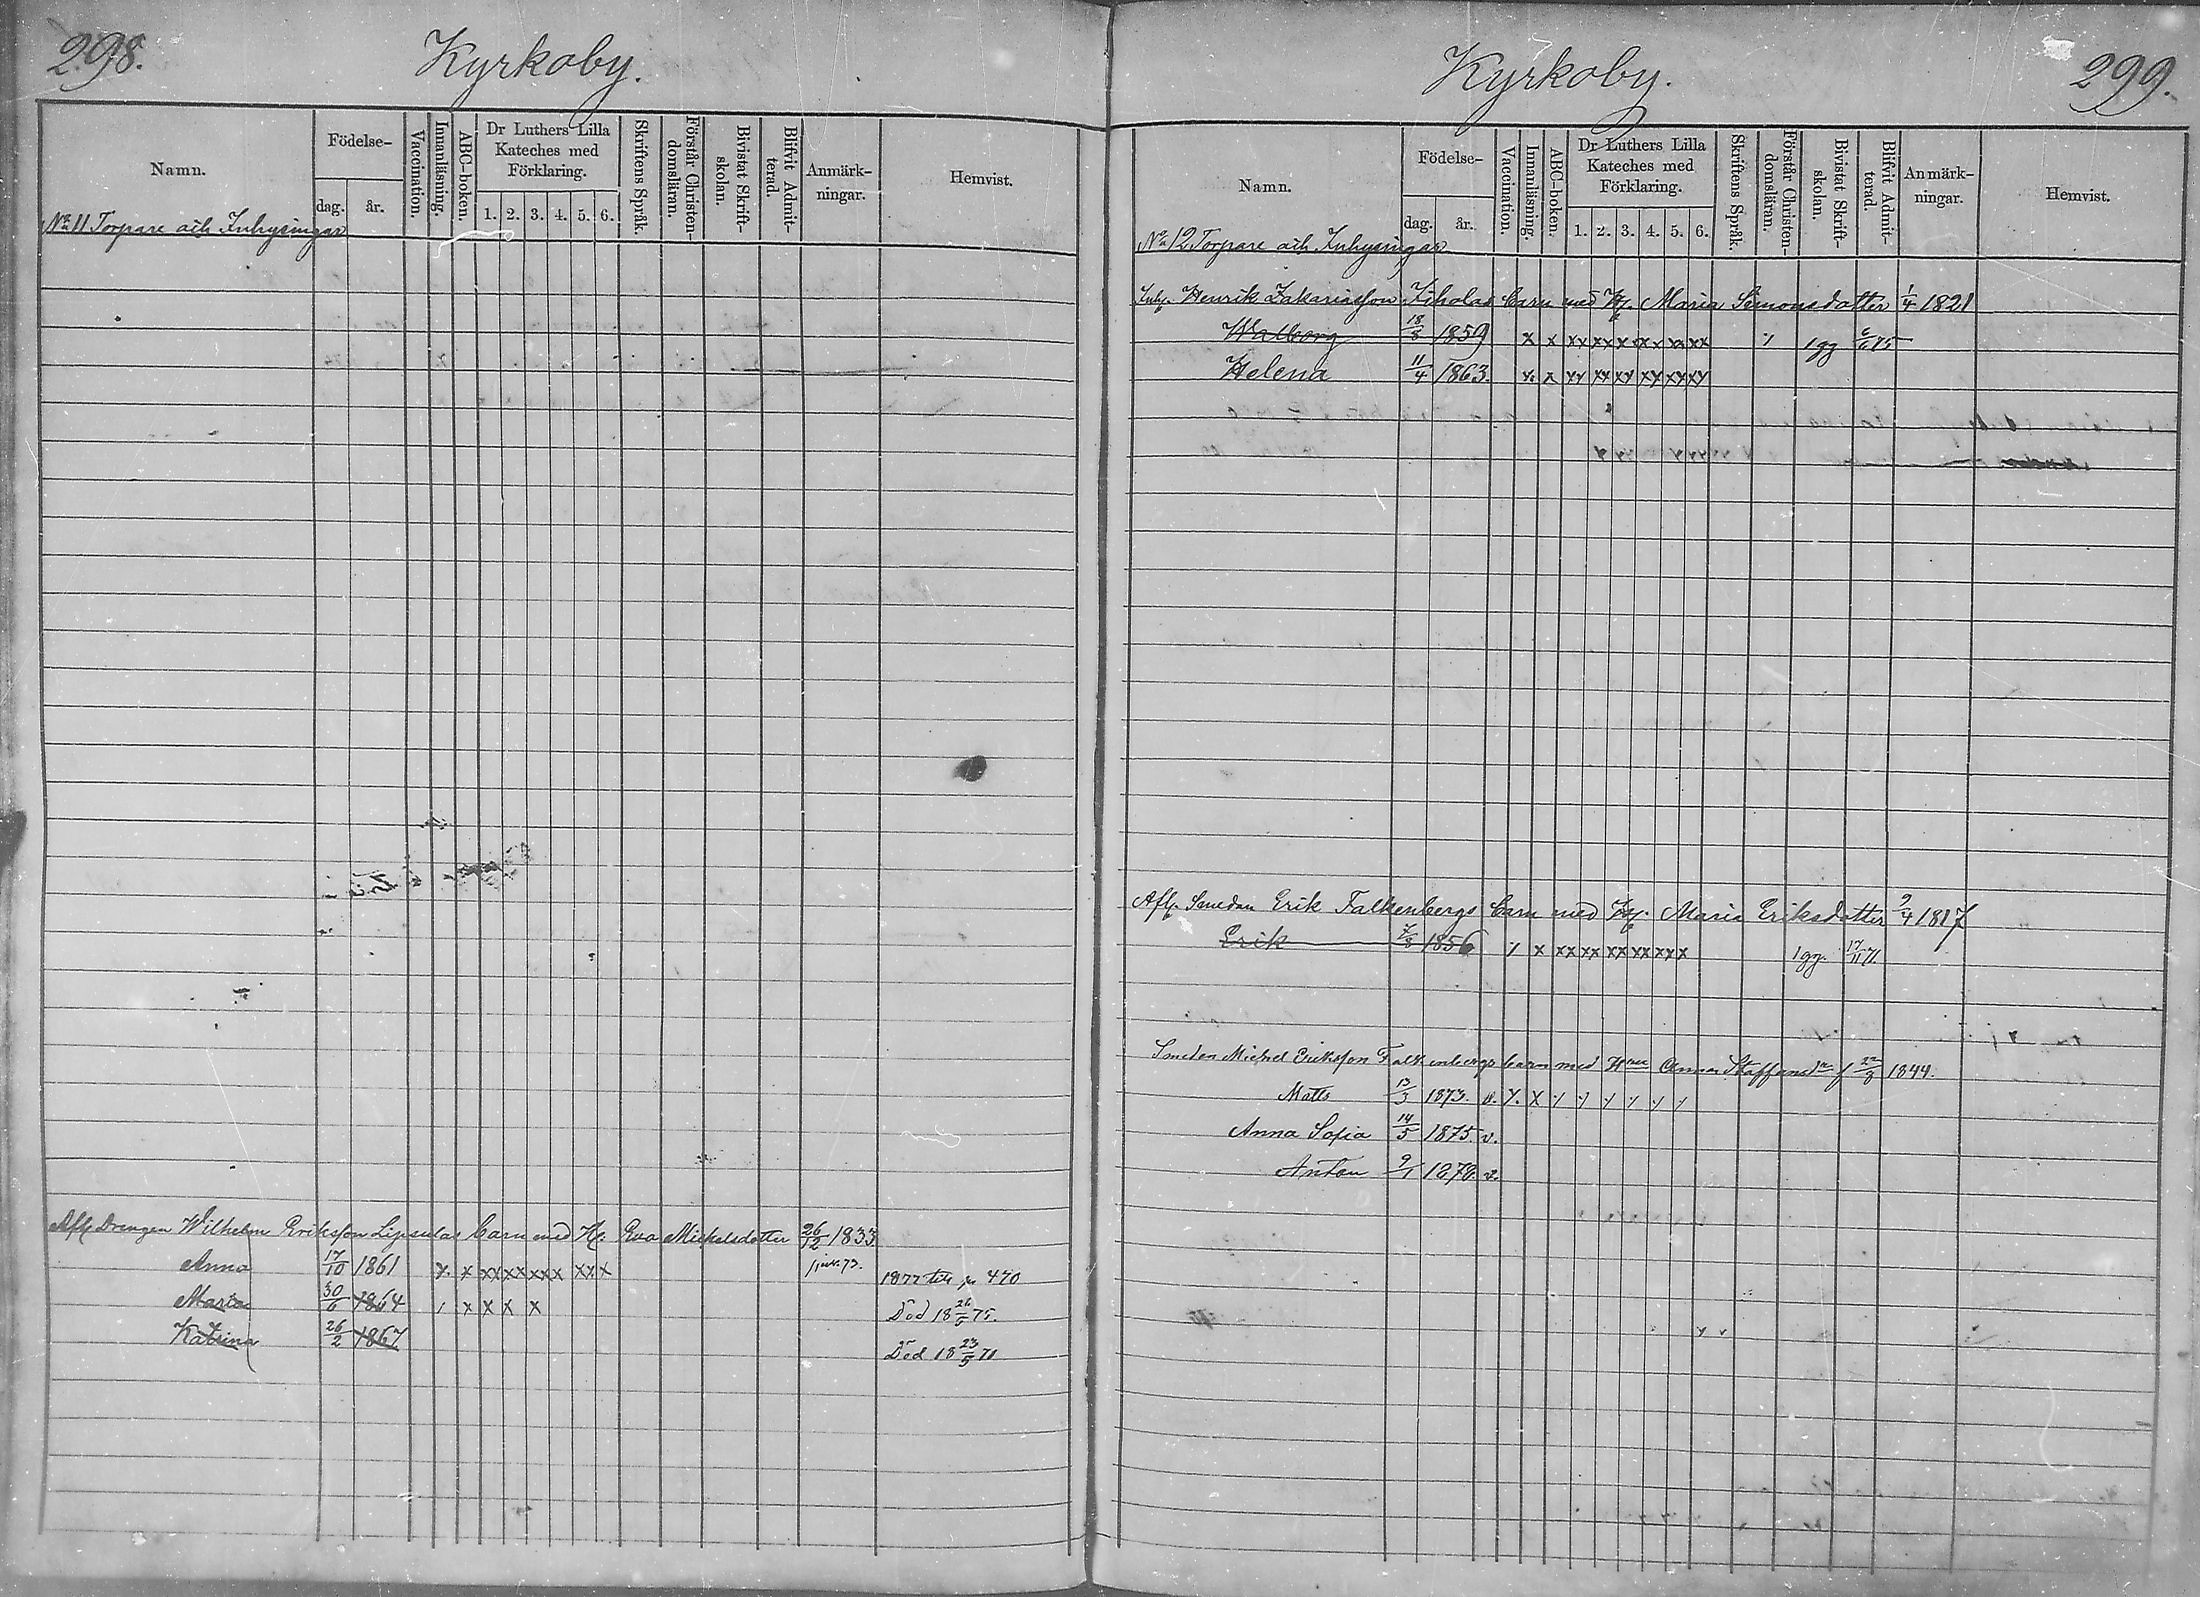 298.
Kyrkoby.
Namn.
Födelse-
dag.
år.
Vaccination.
Innanläsning.
ABC-boken.
Dr Luthers Lilla
Kateches med
Förklaring.
1. 2. 3. 4. 5. 6.
Skriftens Språk.
Förstår Christen-
domsläran.
Bivistat Skrift-
skolan.
Blifvit Admit-
terad.
Anmärk-
ningar.
Hemvist.
No 11 Torpare och Inhysingar
Afl. Drengen Wilhelm Eriksson Lipsulas barn med H. Eva Mickelsdotter 26/12 1833
Anna 17/10 1861 x x xx xx xxx xxx 73. 1877 470
Maria 30/6 1864 x x x x Död 18 75.
Katrina 26/2 1867 Död 18 23/5 71
Kyrkoby.
299.
Namn.
Födelse-
dag.
år.
Vaccination.
Innanläsning.
ABC-boken.
Dr Luthers Lilla
Kateches med
Förklaring.
1. 2. 3. 4. 5. 6.
Skriftens Språk.
Förstår Christen-
domsläran.
Bivistat Skrift-
skolan.
Blifvit Admit-
terad.
Anmärk-
ningar.
Hemvist.
No 12 Torpare och Inhysingar
Inh. Henrik Zakariasson barn med H. Maria Simonsdotter 1/4 1821
Walborg 18/8 1859 x x xx xx xx xx xx xx 1 gg 75
Helena 11/4 1863. x x xx xx xx xx xx xx
Afl. Smeden Erik Falkenbergs barn med H. Maria Eriksdotter 9/4 1817
Erik 7/8 1856 x x xx xx xx xx xx x 1 gg. 17/11 71
Smeden Michel Eriksson Falkenbergs barn med Anna Staffansdr f 22/3 1844.
Matts 13/3 1873. v. x. x x x x x x x
Anna Sofia 14/5 1875. v.
Anton 9/1 1878. v.